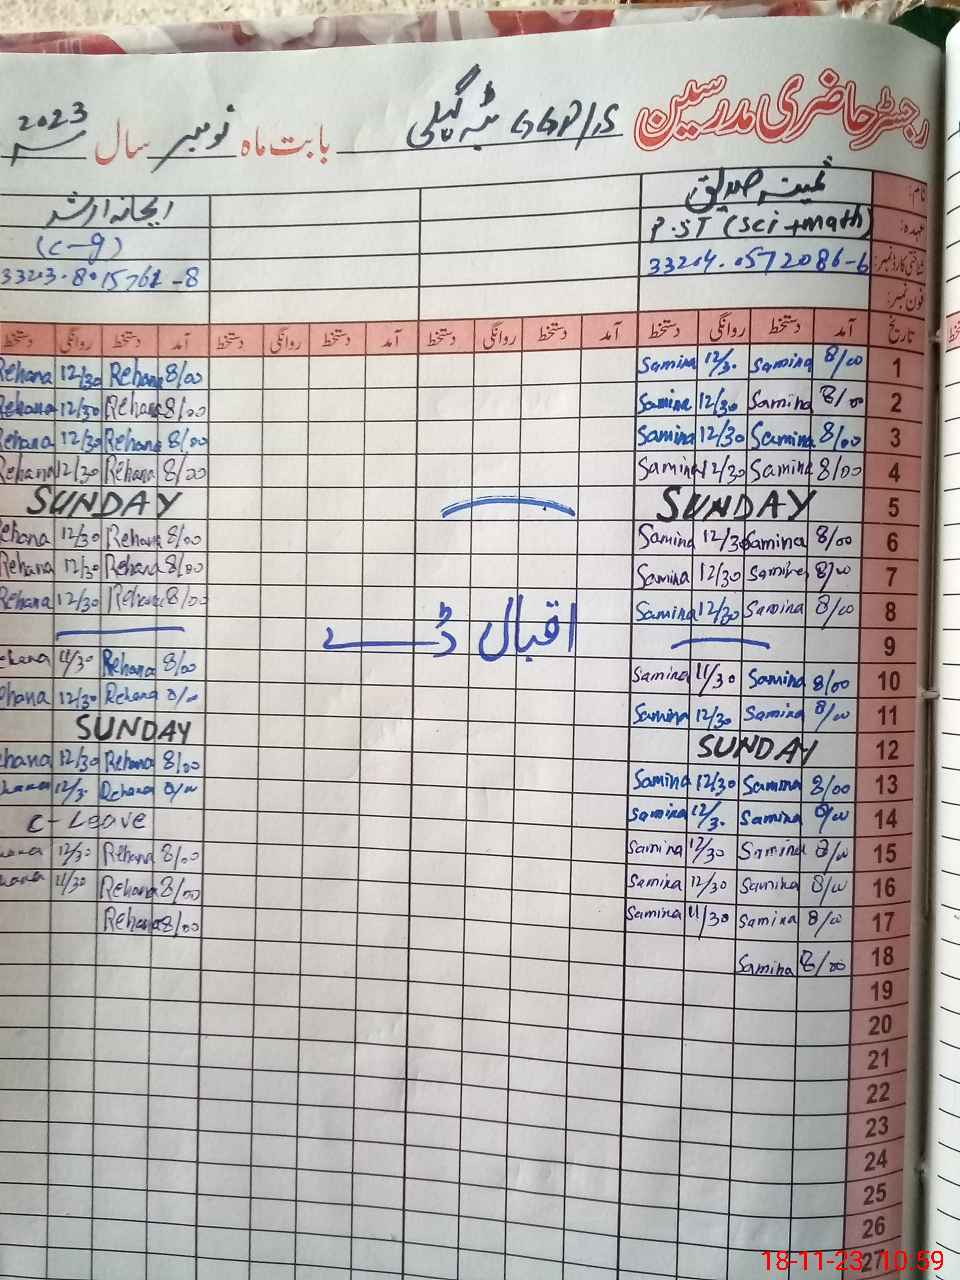 رجسٹر حاضری مدرسین GGP/S ٹبہ گیلی بابت ماہ نومبر سال 2023
نام: ثمینہ صدیق ریحانہ ارشد
عہدہ: P.ST (Sci+math) (C-g)
شناختی کارڈ نمبر: 33204.0572086-6 33203.8015761-8
فون نمبر:
تاریخ آمد دستخط روانگی دستخط آمد دستخط روانگی دستخط آمد دستخط روانگی دستخط آمد دستخط روانگی دستخط
1 8/00 Samina 12/30 Samina 8/00 Rehana 12/30 Rehana
2 8/00 Samina 12/30 Samina 8/00 Rehana 12/30 Rehana
3 8/00 Samina 12/30 Samina 8/00 Rehana 12/30 Rehana
4 8/00 Samina 12/30 Samina 8/00 Rehana 12/30 Rehana
5 SUNDAY SUNDAY
6 8/00 Samina 12/30 Samina 8/00 Rehana 12/30 Rehana
7 8/00 Samina 12/30 Samina 8/00 Rehana 12/30 Rehana
8 8/00 Samina 12/30 Samina 8/00 Rehana 12/30 Rehana
9 اقبال ڈے
10 8/00 Samina 11/30 Samina 8/00 Rehana 11/30 ehana
11 8/00 Samina 12/30 Samina 8/00 Rehana 12/30 ehana
12 SUNDAY SUNDAY
13 8/00 Samina 12/30 Samina 8/00 Rehana 12/30 ehana
14 8/00 Samina 12/3. Samina 8/00 Rehana 12/3. hana
15 8/00 Samina 12/30 Samina C-Leave
16 8/00 Samina 12/30 Samina 8/00 Rehana 12/30 hana
17 8/00 Samina 11/30 Samina 8/00 Rehana 11/30 hana
18 8/00 Samina 8/00 Rehana
19
20
21
22
23
24
25
26
27
18-11-23 10:59